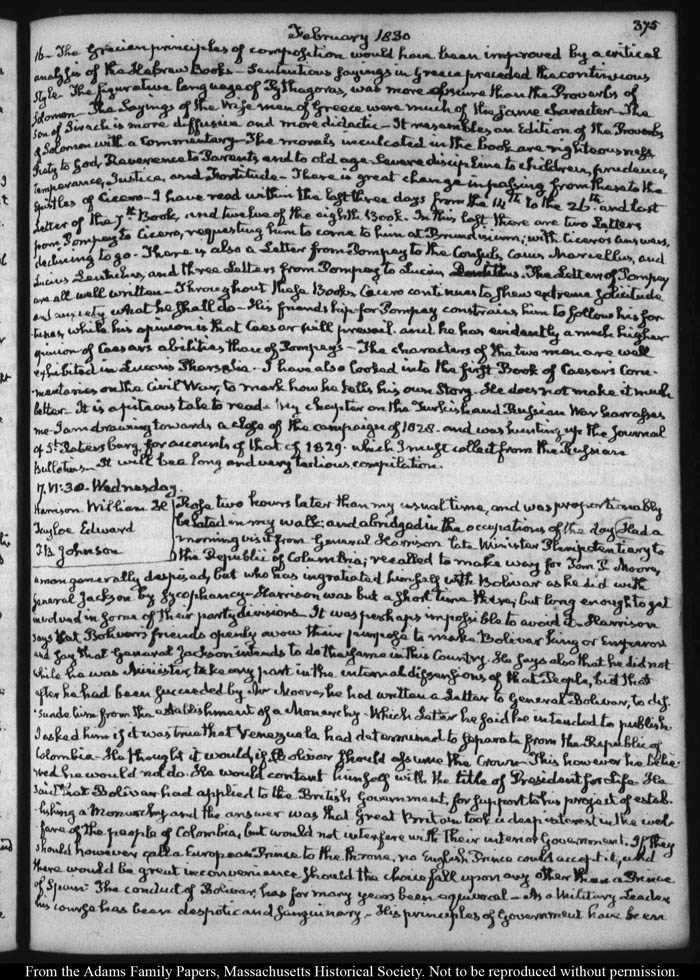 February 1830
375
16– The Grecian principles of composition would have been improved by a critical
analysis of the Hebrew Books– Sententious sayings in Greece preceded the continuous
style– The figurative language of Pythagoras, was more obscure than the Proverbs of
Solomon– The Sayings of the wise men of Greece were much of the same character– The
Son of Sirach is more diffusive and more didactic– It resembles an Edition of the Proverbs
of Solomon with a Commentary– The morals inculcated in the book are righteousness,
Piety to God, Reverence to Parents, and to old age– Severe discipline to children, prudence,
Temperance, Justice, and Fortitude– There is great change in passing from these to the
Epistles of Cicero– I have read within the last three days from the 14th to the 26th and last
Letter of the 7th Book, and twelve of the eighth Book. In this last there are two Letters
from Pompey to Cicero, requesting him to come to him at Brundisium; with Cicero's answers,
declining to go– There is also a Letter from Pompey to the Consuls, Caius Marcellus, and
Lucius Lentulus, and three Letters from Pompey to Lucius Domitius. The Letters of Pompey
are all well written– Throughout these Books Cicero continues to shew extreme solicitude
and anxiety what he shall do– His friendship for Pompey constrains him to follow his for-
tunes, while his opinion is that Caesar will prevail– and he has evidently a much higher
opinion of Caesar's abilities than of Pompey's– The characters of the two men are well
exhibited in Lucan's Pharsalia– I have also looked into the first Book of Caesar's Com-
mentaries on the Civil War, to mark how he tells his own Story. He does not make it much
better. It is a piteous tale to read– My chapter on the Turkish and Russian War harrasses
me– I am drawing towards a close of the campaign of 1828. and was hunting up the Journal
of St. Petersburg, for accounts of that of 1829. which I must collect from the Russian
Bulletins– It will be a long and very tedious compilation.
17. VI:30. Wednesday.
Harrison William H
Tayloe Edward
T.B. Johnson
Rose two hours later than my usual time, and was proportionably
belated in my walk; and abridged in the occupations of the day– Had a
morning visit from General Harrison late Minister Plenipotentiary to
the Republic of Columbia; recalled to make way for Tom P. Moore,
a man generally despised, but who has ingratiated himself with Bolivar as he did with
General Jackson by sycophancy– Harrison was but a short time there; but long enough to get
involved in some of their party divisions– It was perhaps impossible to avoid it– Harrison
says that Bolivar's friends openly avow their purpose to make Bolivar King or Emperor
and say that General Jackson intends to do the same in this Country. He says also that he did not
while he was Minister, take any part in the internal dissensions of that People, but that
after he had been succeeded by Mr Moore, he had written a Letter to General Bolivar, to dis-
suade him from the establishment of a Monarchy– Which Letter he said he intended to publish.
I asked him if it was true that Venezuela had determined to separate from the Republic of
Colombia– He thought it would, if Bolivar should assume the Crown– This however he belie-
ved he would not do. He would content himself with the title of President for Life– He
said that Bolivar had applied to the British Government, for support to his project of estab-
lishing a Monarchy and the answer was that Great Britain took a deep interest in the wel-
fare of the people of Colombia, but would not interfere with their interior Government. If they
should however call a European Prince to the throne, no English Prince could accept it, and
there would be great inconvenience should the choice fall upon any other than a Prince
of Spain– The conduct of Bolivar, has for many years been equivocal– As a Military Leader
his course has been despotic and sanguinary– His principles of Government have been
From the Adams Family Papers, Massachusetts Historical Society. Not to be reproduced without permission.